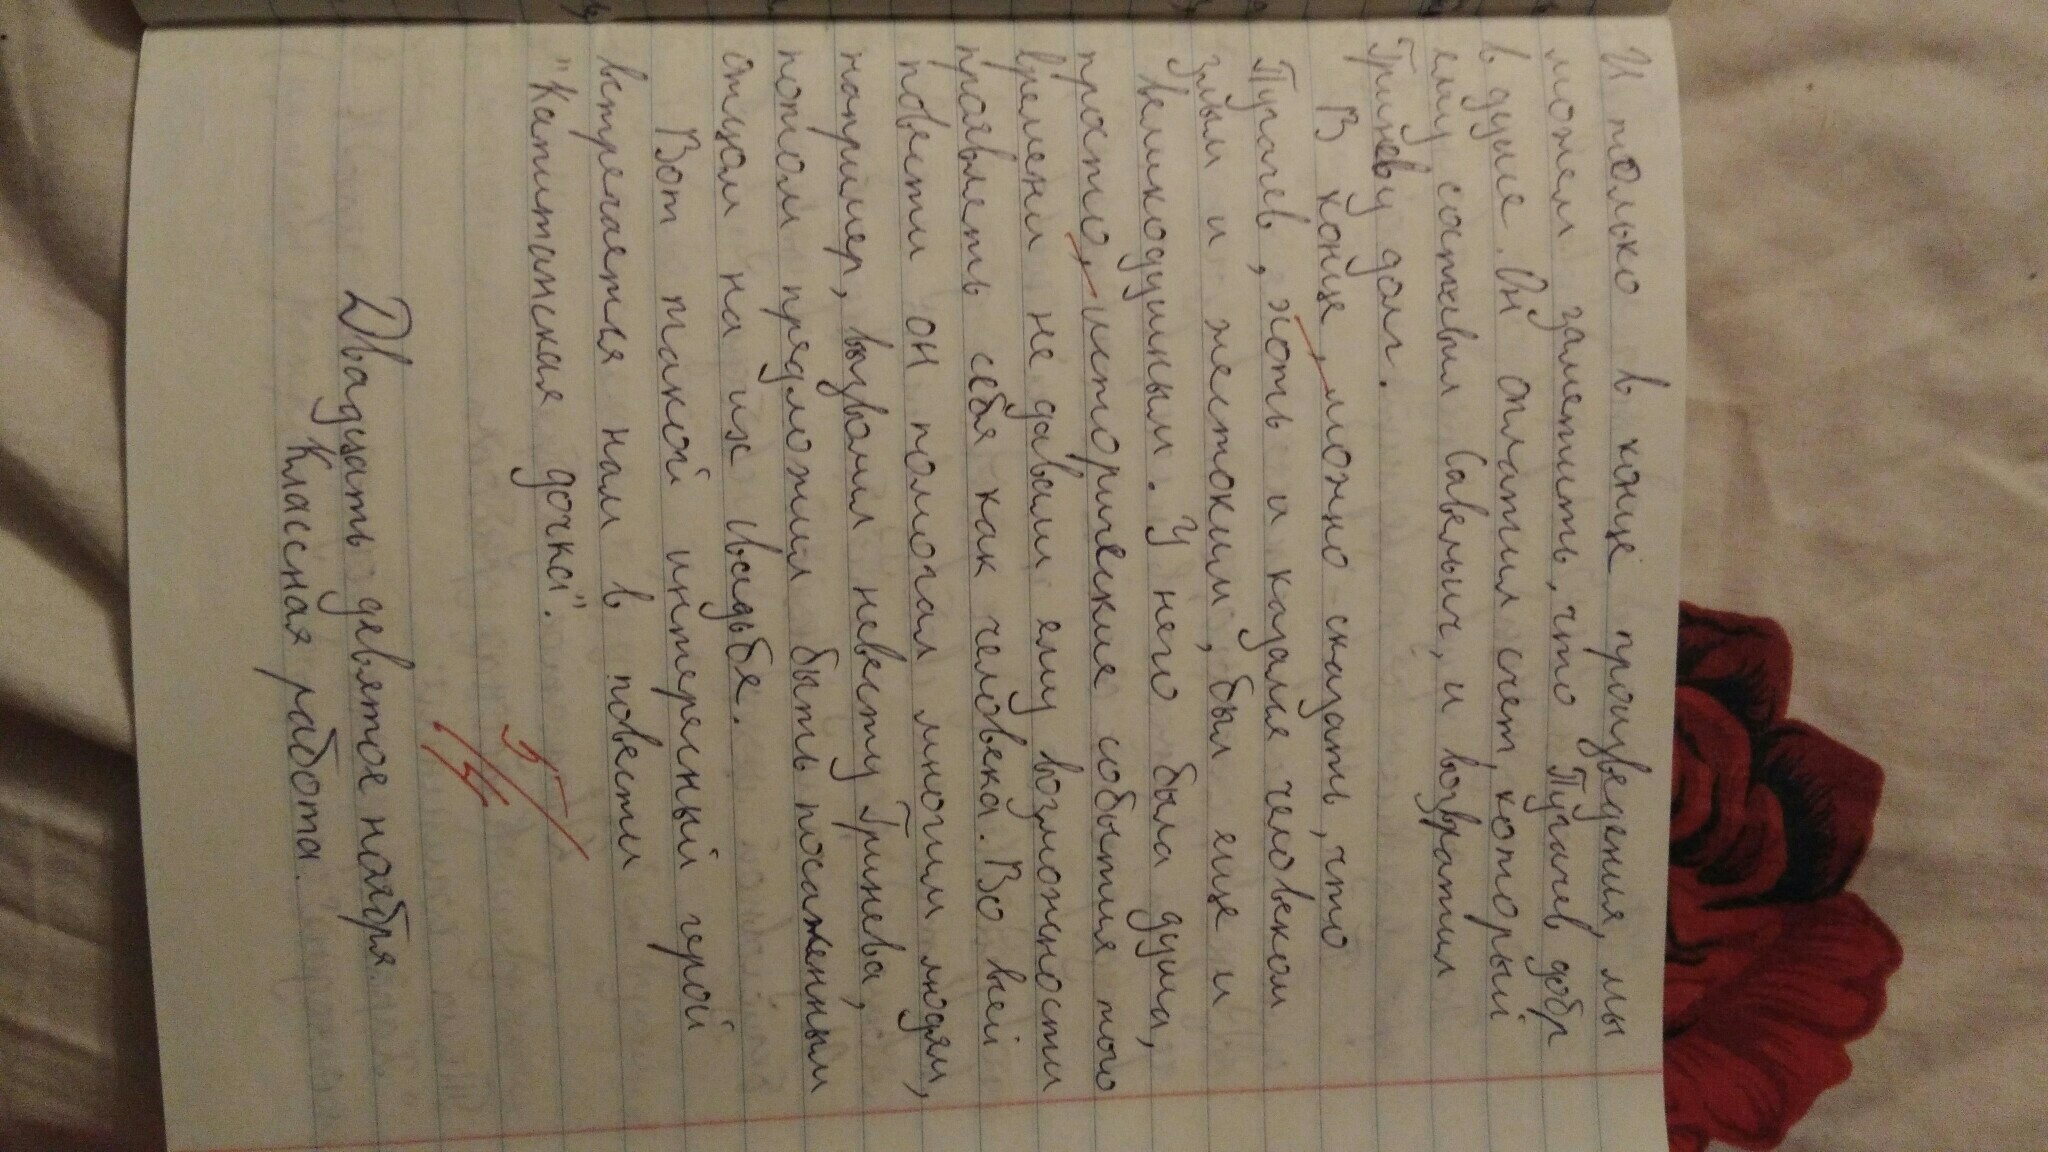 И только в конце произведения, мы
можем заметить, что Пугачев добр
в душе. Он оплатил счет, который
ему составил Савельич, и возвратил
Гриневу долг.
В конце, можно сказать, что
Пугачев, хоть и казался человеком
злым и жестоким, был еще и
великодушным. У него была душа,
просто, исторические события того
времени не давали ему возможности
проявлять себя как человека. Во всей
повести он помогал многим людям,
например, вызволил невесту Гринева,
потом предложил быть посаженным
отцом на их свадьбе.
Вот такой интересный герой
встречается нам в повести
"Капитанская дочка".
5/4
Двадцать девятое ноября.
Классная работа.